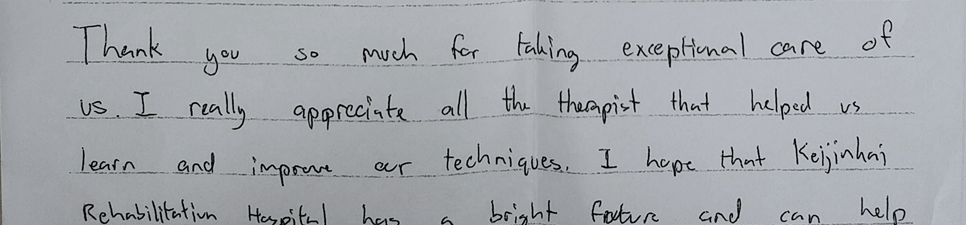 Thank you so much for taking exceptional care of
us. I really appreciate all the therapist that helped us
learn and improve our techniques. I hope that Keijinhai
Rehabilitation Hospital has a bright future and can help